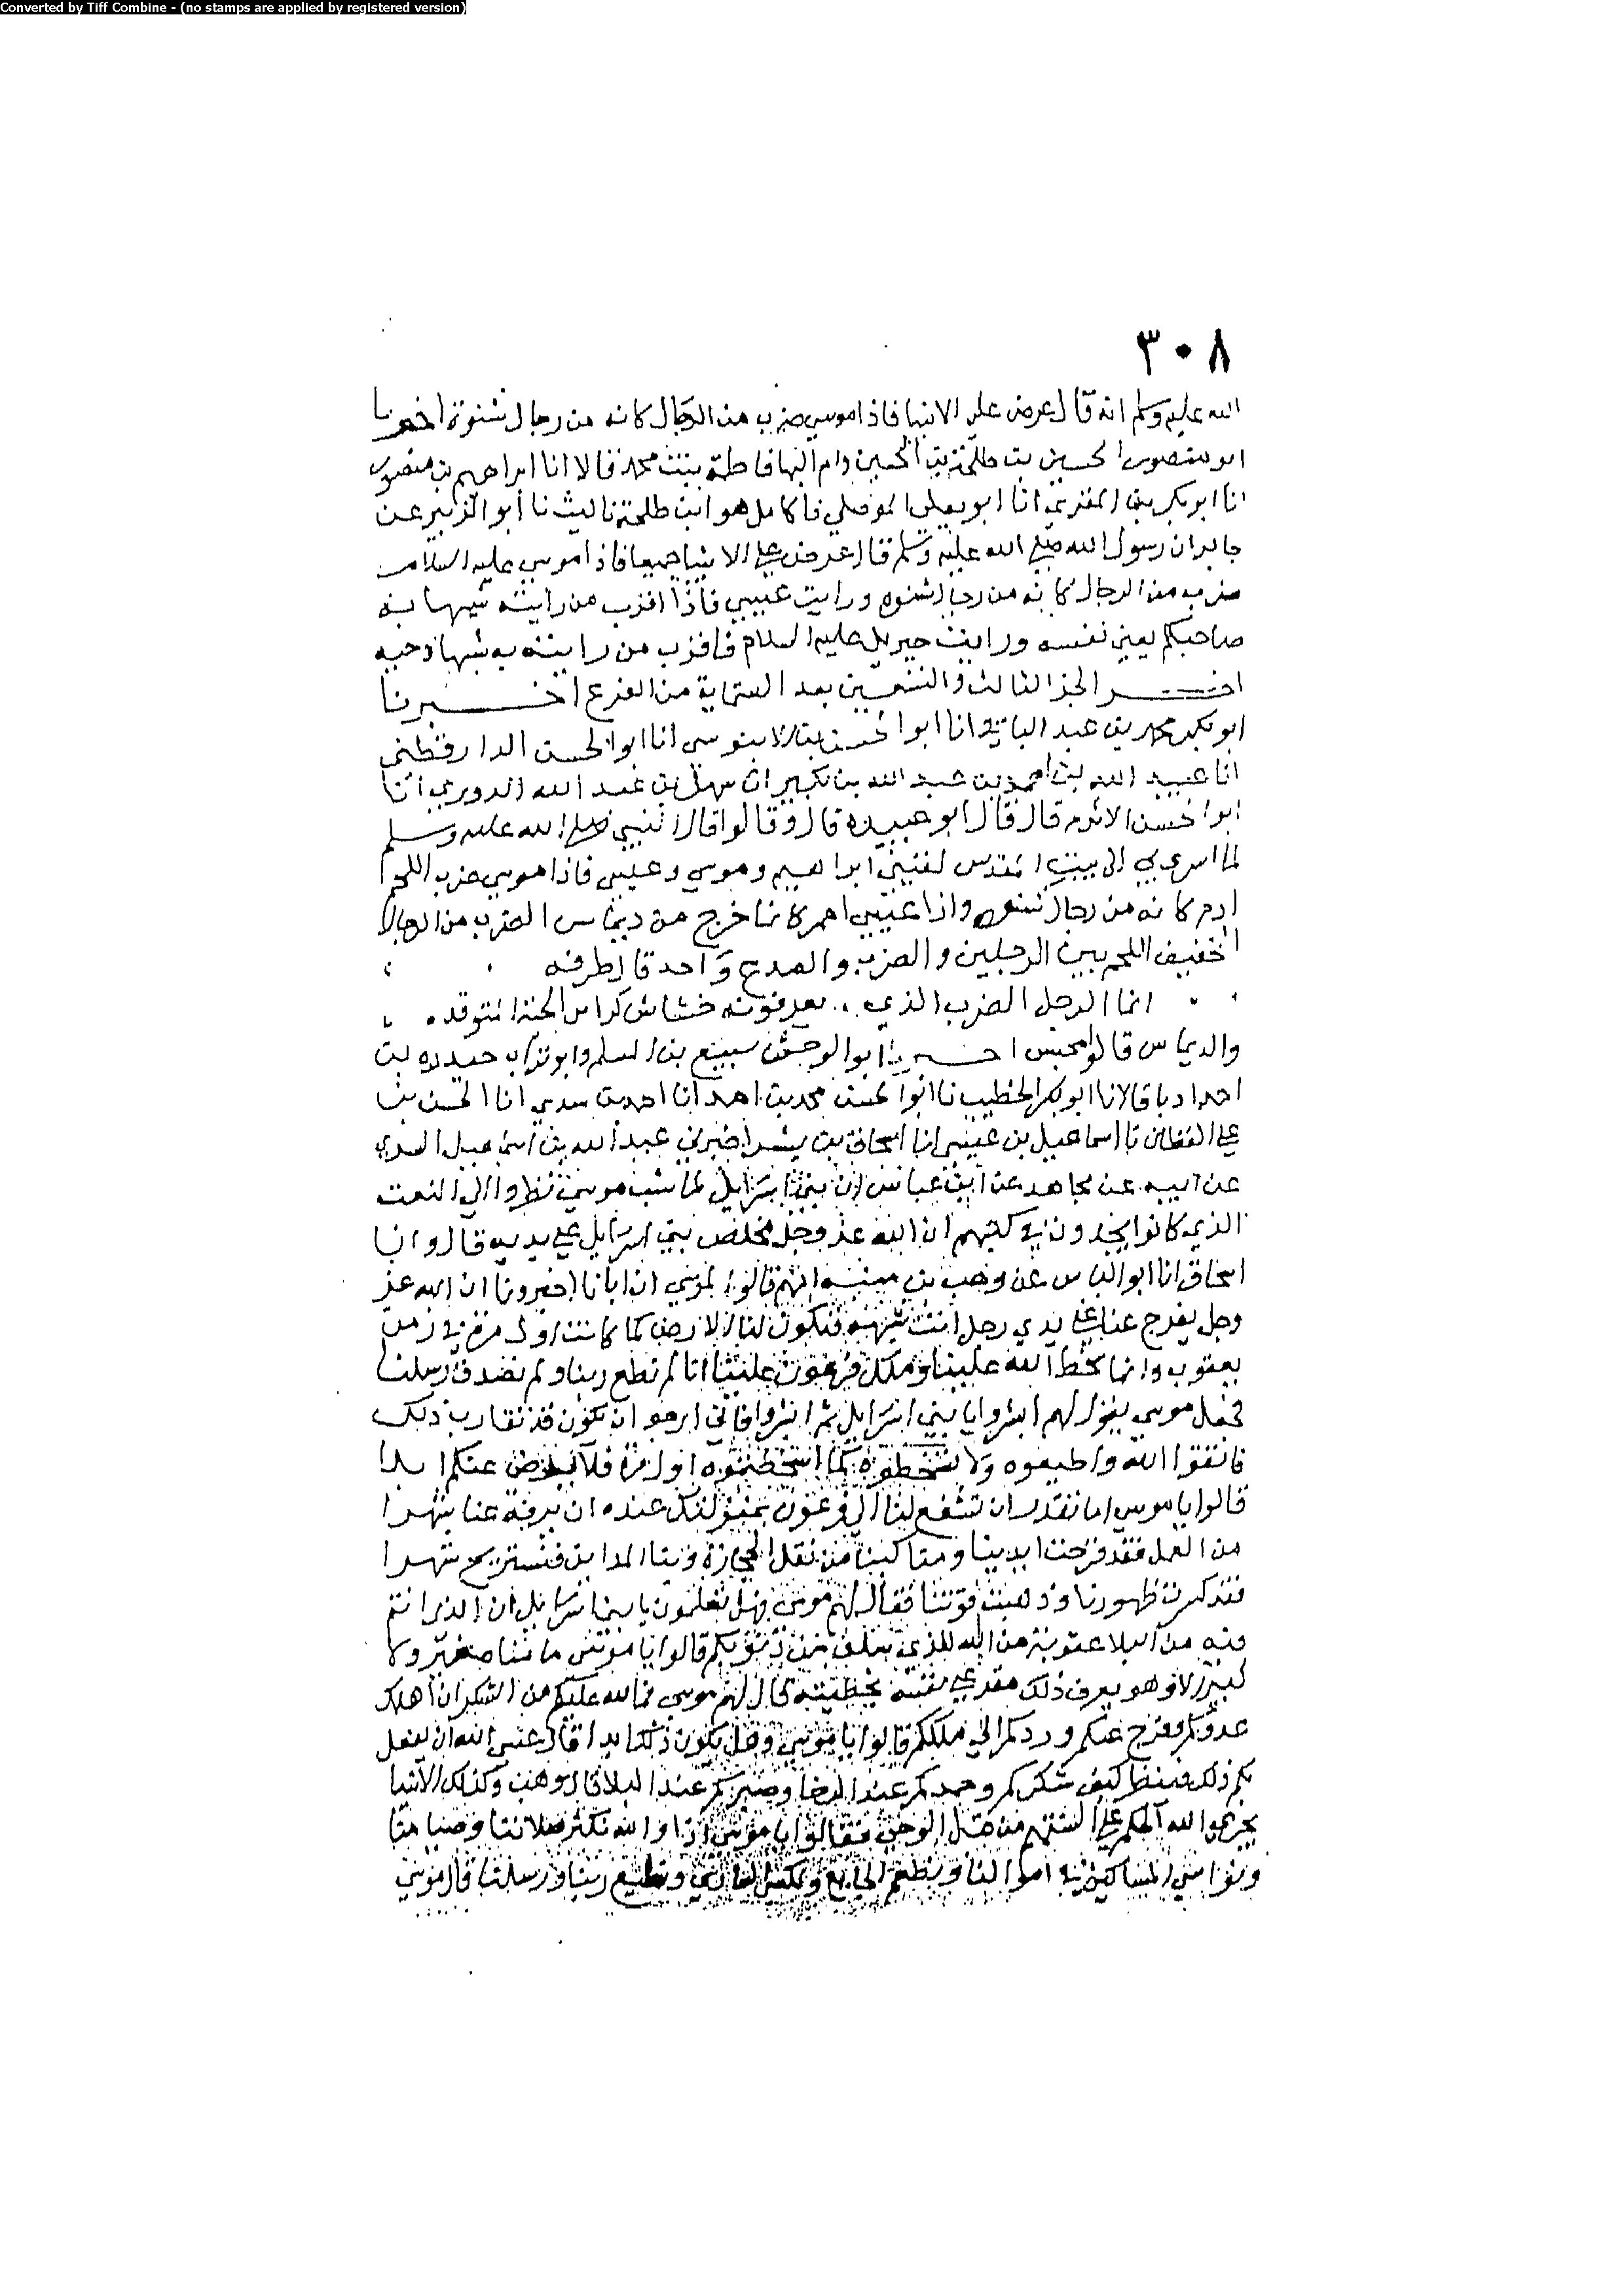 Converted by Tiff Combine - (no stamps are applied by registered version)
٣٠٨
الله عليه وسلم انه قال عرض علي الانبيا فاذا موسي ضرب من الرجال كانه من رجال شنوة اخبرنا
ابو منصور الحسين بن طلحة بن الحسين وام البها فاطمة بنت محمد قالا انا ابراهيم بن منصور
انا ابو بكر بن المقري انا ابو يعلى الموصلي نا كامل هو ابن طلحة نا ليث نا أبو الزبير عن
جابر ان رسول الله صلى الله عليه وسلم قال عرض علي الانبيا جميعا فاذا موسي عليه السلام
ضرب من الرجال كانه من رجال شنوه ورايت عيسي فاذا اقرب من رايته شبها به
صاحبكم يعني نفسه ورايت جبريل عليه السلام فاقرب من رايته به شبها دحيه
اخر الجز الثالث والتسعين بعد الستماية من الفرع اخبرنا
ابو بكر محمد بن عبد الباقي انا ابو الحسن بن الابنوسي انا ابو الحسن الدارقطني
انا عبيد الله بن احمد بن عبد الله بن بكير ان سهل بن عبد الله الدوري انا
ابو الحسن الاثرم قال قال ابو عبيدة قال وقالوا قال النبي صلى الله عليه وسلم
لما اسري بي الى بيت المقدس لقيني ابراهيم وموسي وعيسى فاذا موسي ضرب اللحم
ادم كانه من رجال شنوه واذا عيسي احمر كانما خرج من ديماس الضرب من الرجال
الخفيف اللحم بين الرجلين والضرب والصدع واحد قال طرفه
انما الرجل الضرب الذي .. تعرفونه خشاش كراس الحية المتوقد
والديماس قالوا محبس اخبرنا ابو الوحش سبيع بن المسلم وابو تراب حيدره بن
احمد قالا نا ابو بكر الخطيب نا ابو الحسن محمد بن احمد انا احمد بن سدي انا الحسن بن
علي القطان نا اسماعيل بن عيسى انا اسحاق بن بشر اخبرني عبد الله بن اسماعيل السدي
عن ابيه عن مجاهد عن ابن عباس ان بني اسرايل لما شب موسي نظروا الى النعت
الذي كانوا يجدون في كتبهم ان الله عز وجل مخلص بني اسرايل على يديه قال وانا
اسحاق انا ابو الياس عن وهب بن منبه انهم قالوا لموسي ان ابانا اخبرونا ان الله عز
وجل يفرج عنا على يدي رجل انت شبهه فتكون لنا الارض كما كانت اول مرة في زمن
يعقوب وانما سخط الله علينا وملك فرعون علينا انا لم نطع ربنا ولم نصدق رسلنا
فجعل موسي يقول لهم ابشروا يا بني اسرايل ثم ابشروا فاني ارجو ان يكون قد تقارب ذلك
فاتقوا الله واطيعوه ولا تسخطوه كما اسخطتموه اول مرة فلا يرض عنكم ابدا
قالوا يا موسى اما تقدر ان تشفع لنا الى فرعون بمنزلتك عنده ان يرفه عنا شهرا
من العمل فقد قرحت ايدينا ومناكبنا من نقل الحجارة وبنا المداين فنستريح شهرا
فقد دبرت ظهورنا وذهبت قوتنا فقال لهم موسى فهل تعلمون يا بني اسرايل ان الذي انتم
فيه من البلا عقوبة من الله للذي سلف من ذنوبكم قالوا يا موسى ما منا صغير ولا
كبير الا وهو يعرف ذلك مقر على نفسه بخطيئته قال لهم موسى فما لله عليكم من الشكر ان أهلك
عدوكم وفرج عنكم وردكم الى ملككم قالوا يا موسى وهل يكون ذلك ابدا قال عسى الله ان يفعل
بكم ذلك فينظر كيف شكركم وحمدكم عند الرخا وصبركم عند البلا قال وهب وكذلك الانبيا
يجري الله الحكم على السنتهم من قبل الوحي فقالوا يا موسى اذا والله نكثر صلاتنا وصيامنا
ونواسي المساكين في اموالنا ونطعم الجايع ونكسو العاري ونطيع ربنا ورسلنا قال موسى